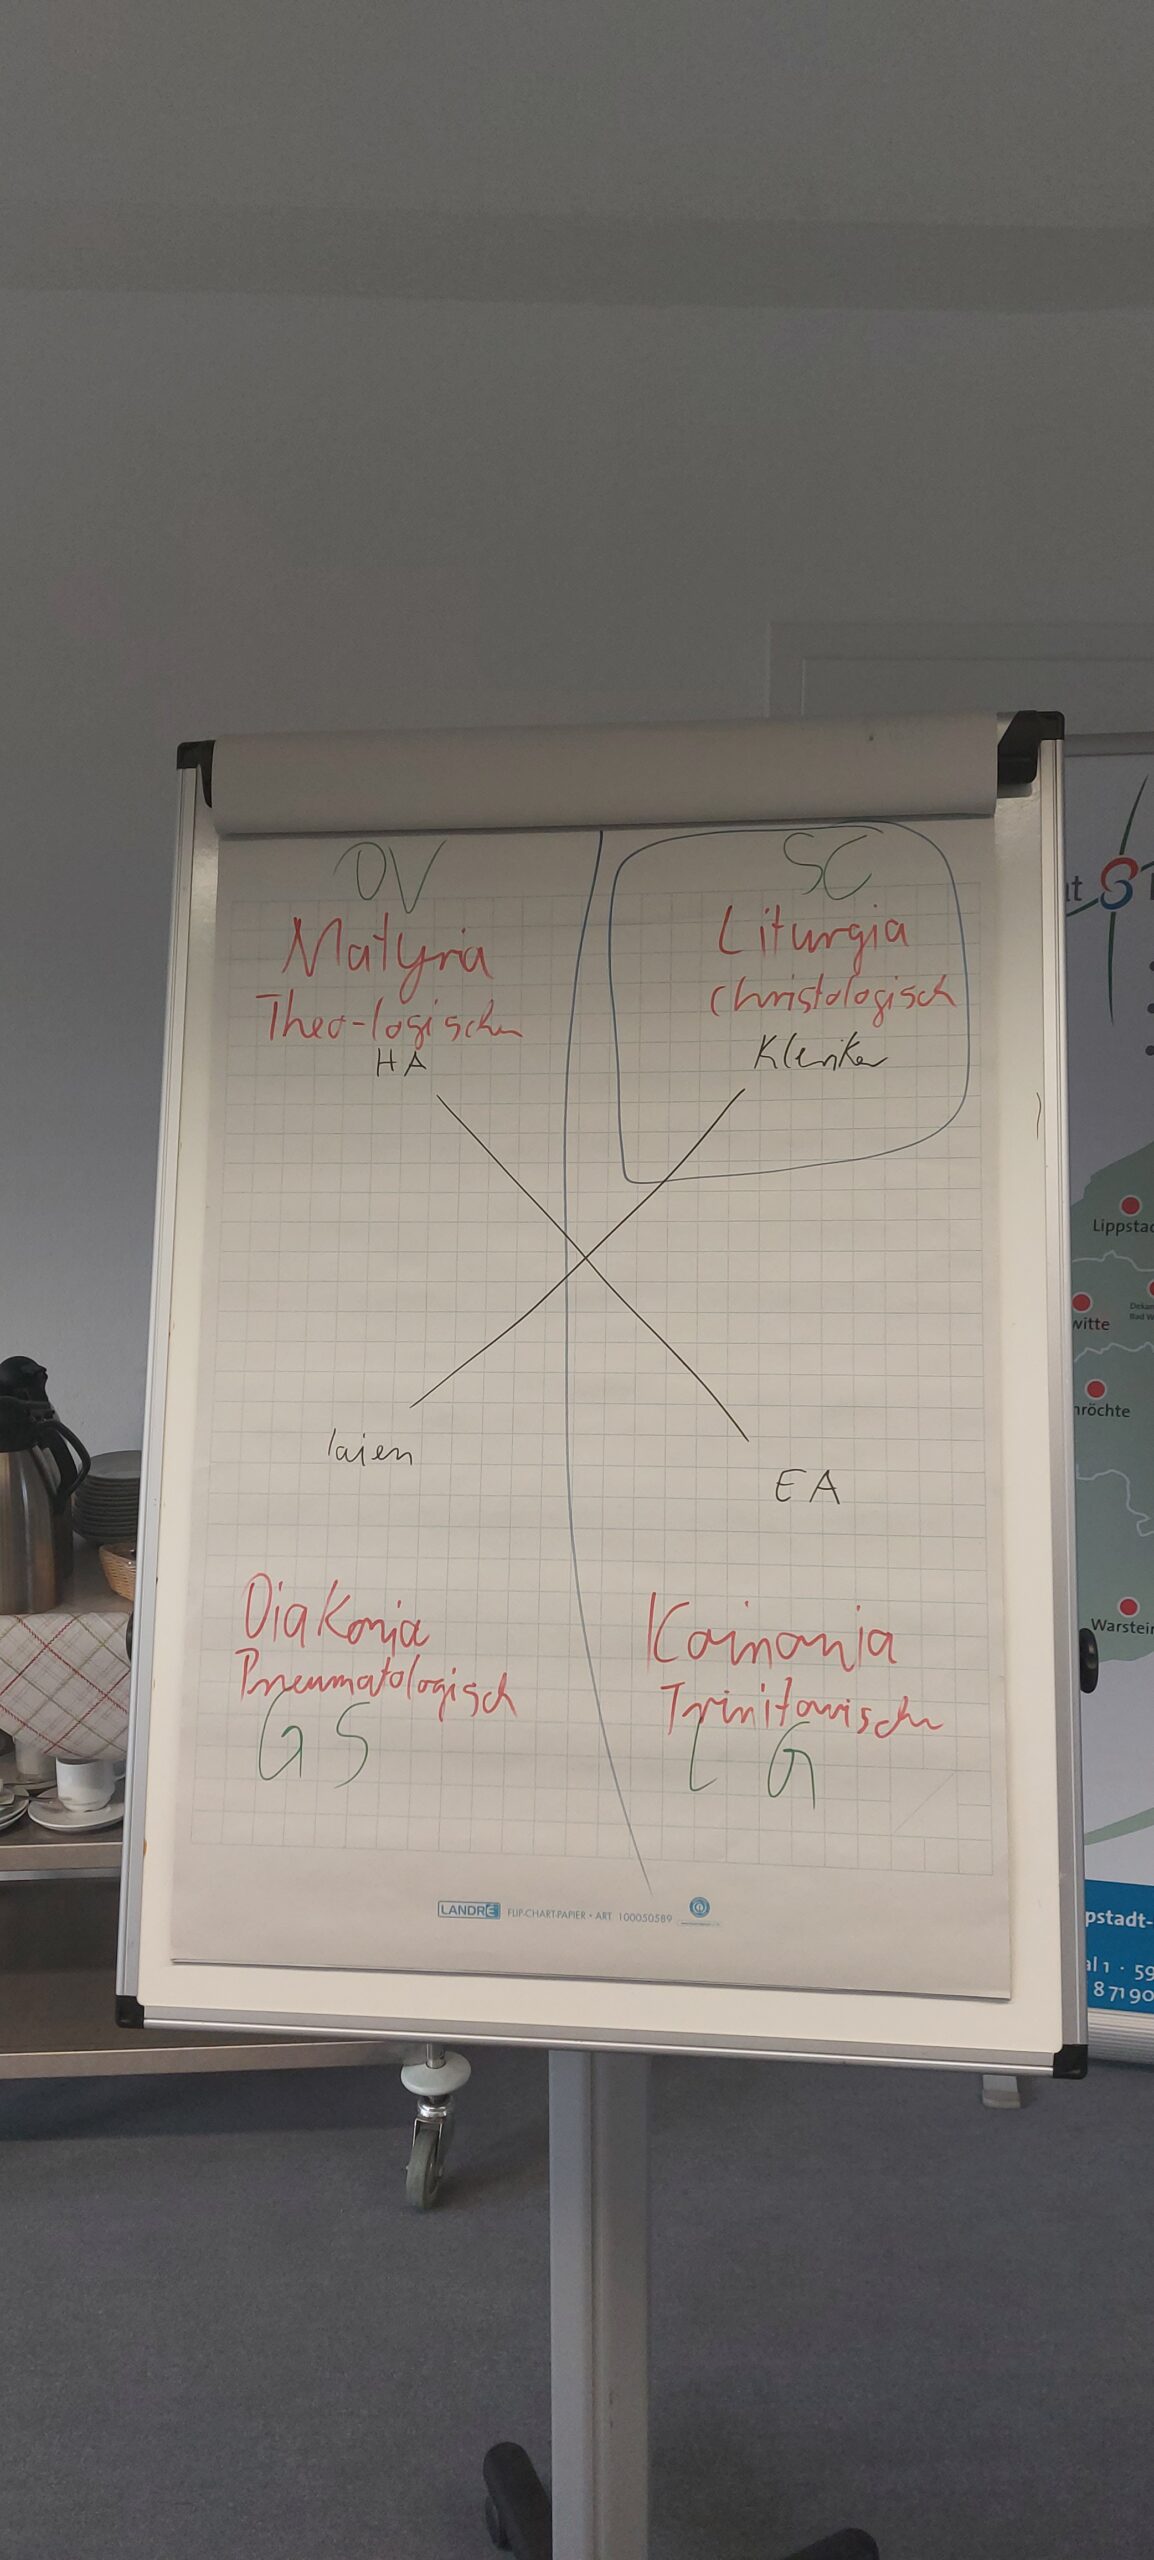 DV
Matyria
Theo-logischen
HA
SC
Liturgia
Christologisch
Kleriker
laien
EA
Diakonia
Pneumatologisch
GS
Koinonia
Trinitarisch
L G
LANDRÉ FLIP-CHART-PAPIER • ART. 100050589
at
Lippstad
witte
Dekan
Bad W
nröchte
Warstein
pstadt-
al 1 · 59
8 71 90